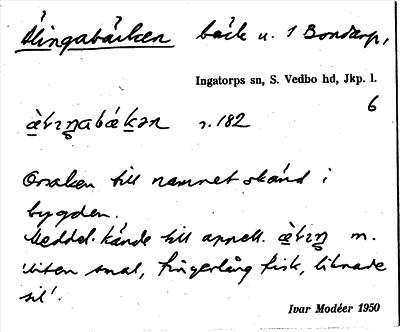 Älingabäcken bäck u. 1 Bondarp,
Ingatorps sn, S. Vedbo hd, Jkp. l.
6
s. 182
Orsaken till namnet okänd i
bygden.
Meddel. kände till appell. m.
'liten smal, fingerlång fisk, liknade
sil'.
Ivar Modéer 1950